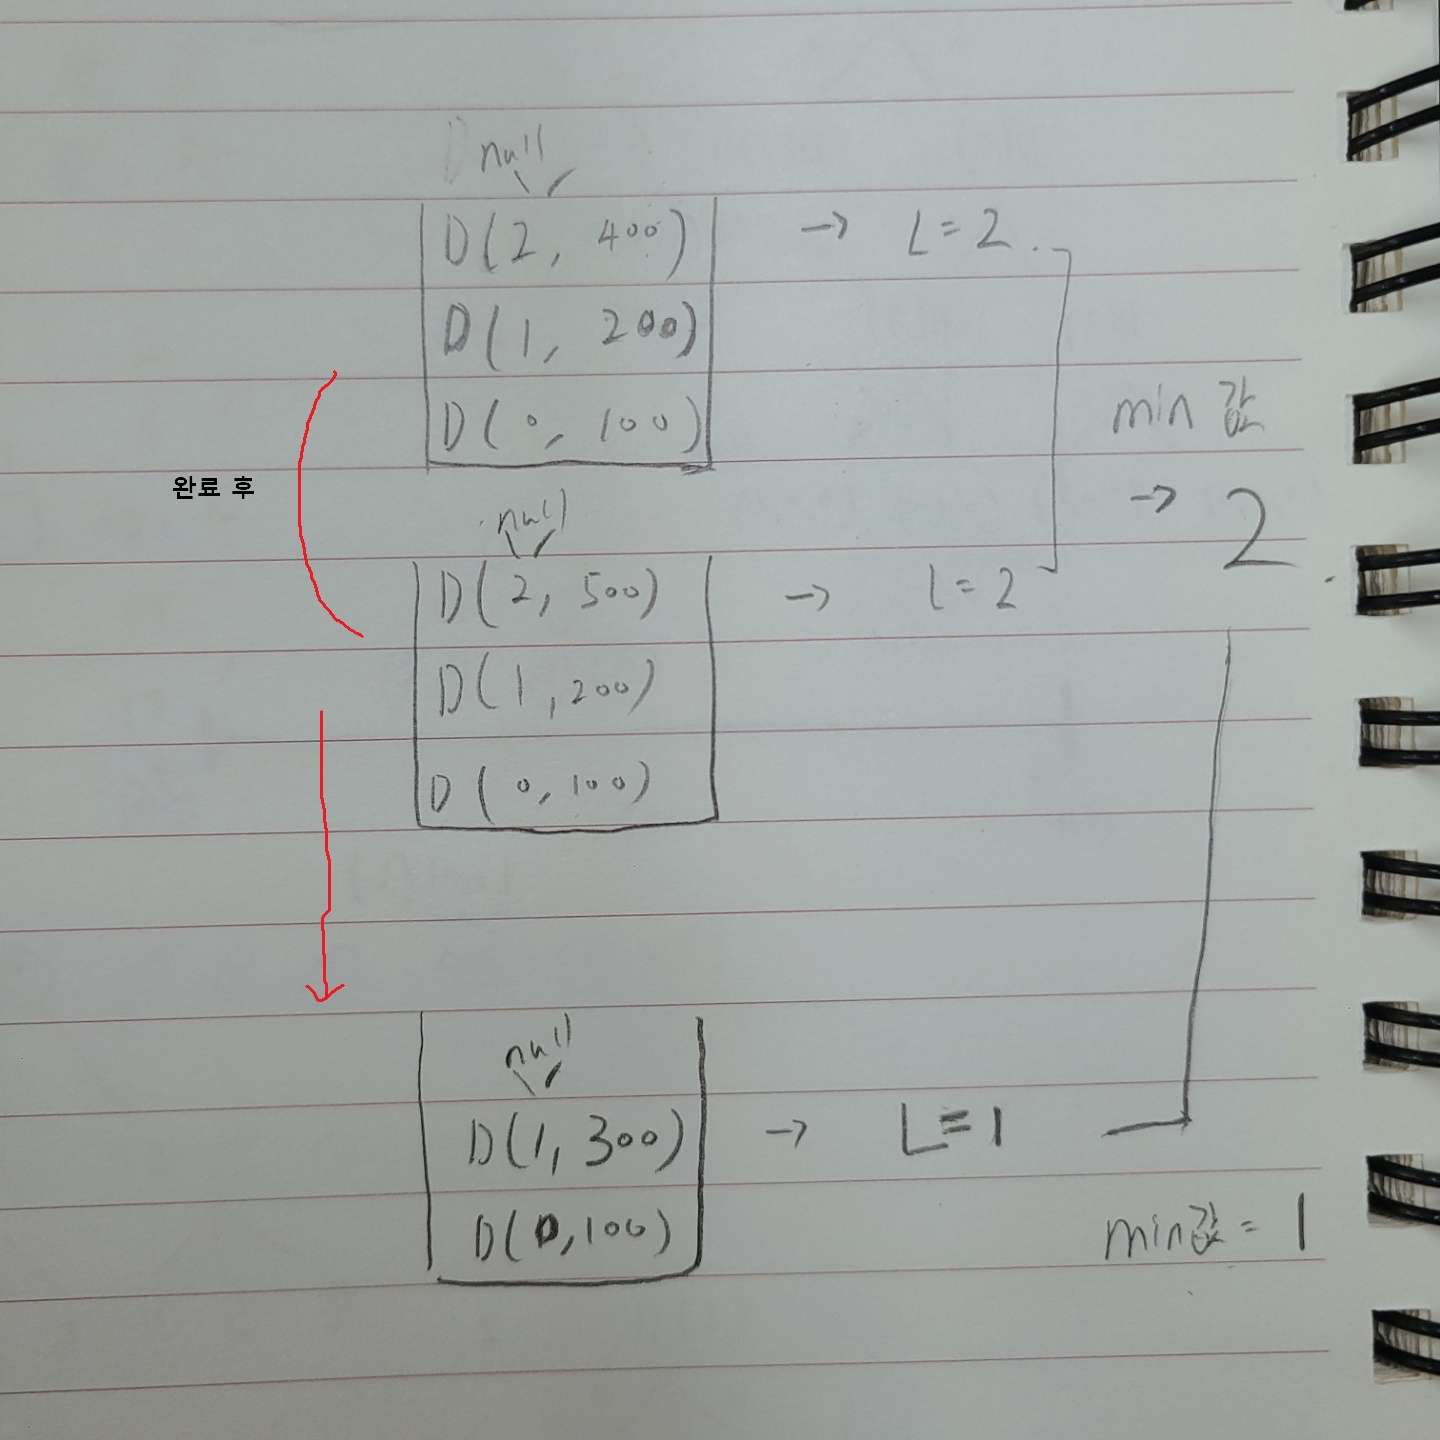 null
D(2, 400) → L=2
D(1, 200)
D(0, 100)
min 값
완료 후
→ 2
null
D(2, 500) → L=2
D(1, 200)
D(0, 100)
null
D(1, 300) → L=1
D(0, 100)
min값 = 1